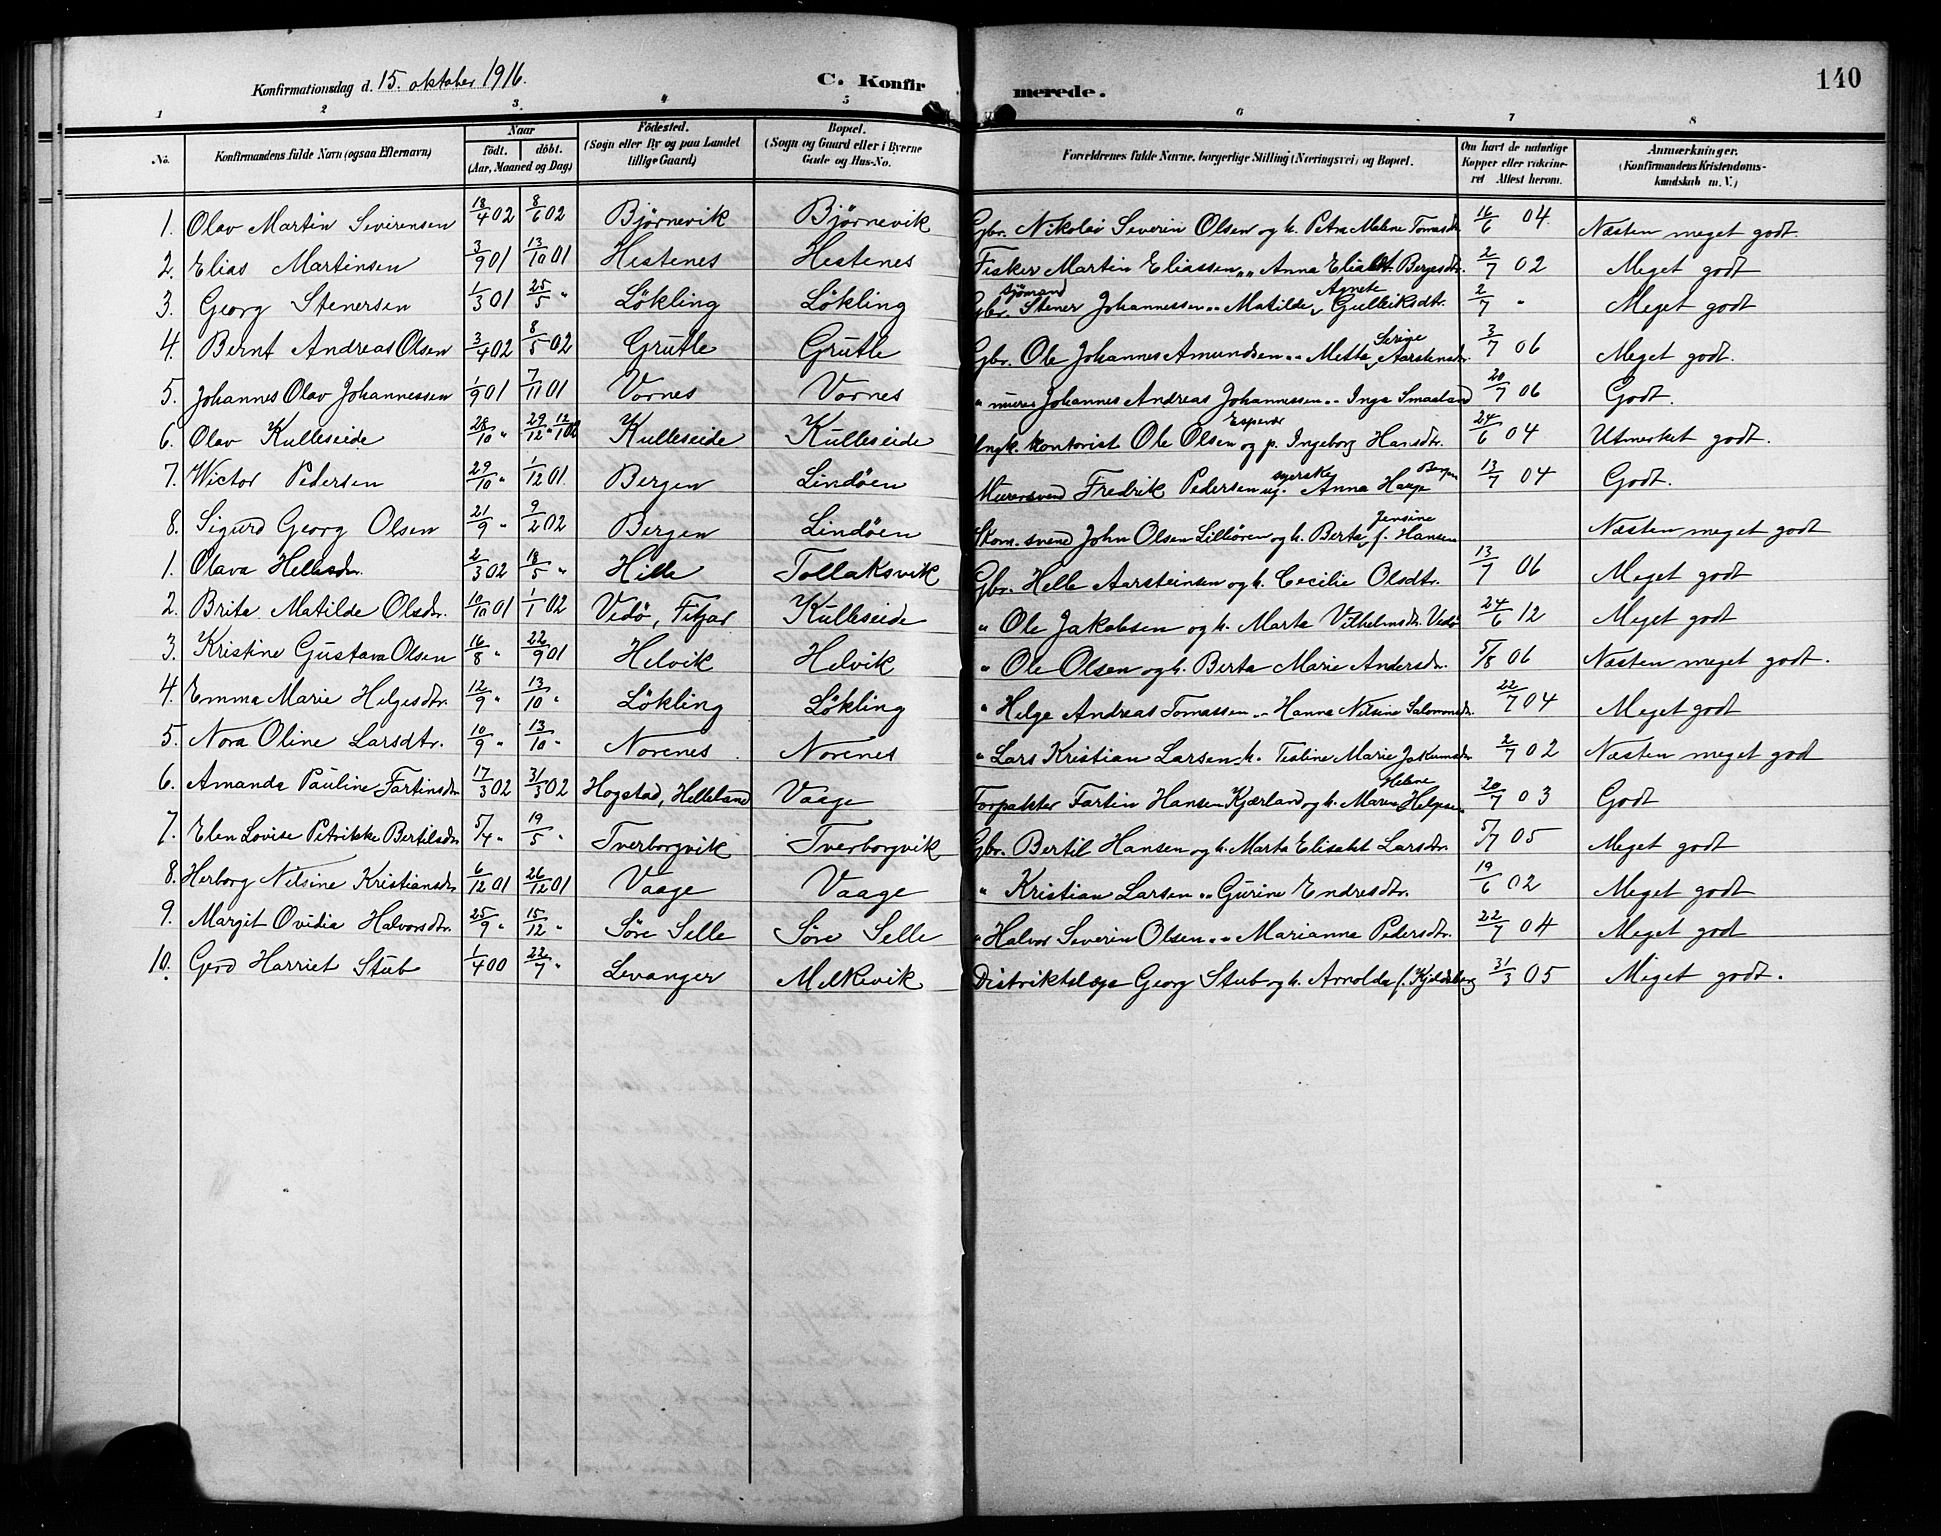 140
Konfirmationsdag d. 15. oktober 1916. C. Konfirmerede.
1 2 3. 4 5 6 7 8
No. Konfirmandens fulde Navn (ogsaa Efternavn) Naar födt. döbt. (Aar, Maaned og Dag) Födested. (Sogn eller By og paa Landet tillige Gaard.) Bopæl. (Sogn og Gaard eller i Byerne Gade og Hus-No. Forældrenes fulde Navne, borgerlige Stilling (Næringsvei) og Bopæl. Om havt de naturlige Kopper eller vaccineret Attest herom. Anmærkninger. (Konfirmandens Kristendomskundskab m. V.)
1. Olav Martin Severinsen 18/4 02 8/6 02 Björnevik Björnevik Gbr. Nikolai Severin Olsen og h. Petra Malene Tomasdr. 16/6 04. Næsten meget godt.
2. Elias Martinsen 3/9 01 13/10 01 Hestenes Hestenes Fisker Martin Eliassen „ „ Anna Elisabet Bergesdtr. 2/7 02 Meget godt
3. Georg Stenersen 1/3 01 25/5 „ Lökling Lökling Gbr. sjömand Stener Johannessen „ „ Matilde Agnete Gulleiksdtr. 2/7 „ Meget godt
4. Bernt Andreas Olsen 3/4 02 8/5 02 Grutle Grutle Gbr. Ole Johannes Amundsen „ „ Metta Serine Aarstensdr. 3/7 06 Meget godt.
5. Johannes Olav Johannessen 1/9 01 7/11 01 Vornes Vornes „ murer Johannes Andreas Johannessen „ „ Inga Smaaland 20/7 06 Godt.
6. Olav Kulleseide 28/10 „ 29/12 „ 12/1 02 Kulleseide Kulleseide Ungk. kontorist Ole Olsen og p. Ingeborg Hansdtr. 24/6 04 Utmerket godt.
7. Wictor Pedersen 29/10 „ 1/12 01. Bergen Lindöen Murersvend Fredrik Pedersen ug. syerske Anna Hauge Bergen 13/7 04 Godt.
8. Sigurd Georg Olsen 21/9 „ 9/2 02 Bergen Lindöen Skom. svend John Olsen Lillören og h. Berta Jensine f. Hansen Næsten meget godt
1. Olava Hellesdr. 2/3 02 18/5 „ Hille Tollaksvik Gbr. Helle Aarsteinsen og h. Cecilie Olsdtr. 13/7 06 Meget godt
2. Brita Matilde Olsdr. 10/10 01 1/1 02 Vedö, Fitjar Kulleseide „ Ole Jakobsen og h. Marta Vilhelmsdr. Vedö 24/6 12 Meget godt
3. Kristine Gustava Olsen 16/8 „ 22/9 01 Helvik Helvik „ Ole Olsen og h. Berta Marie Andersdr. 5/8 06 Næsten meget godt.
4. Emma Marie Helgesdtr. 12/9 „ 13/10 „ Lökling Lökling „ Helge Andreas Tomassen „ „ Hanna Nilsine Salomonsdr. 22/7 04 Meget godt
5. Nora Oline Larsdtr. 10/9 „ 13/10 „ Norenes Norenes „ Lars Kristian Larsen h. Tealine Marie Jakumsdr. 2/7 02 Næsten meget god
6. Amanda Pauline Fartinsdr. 17/3 02 31/3 02 Hogstad, Helleland Vaage Forpakter Fartin Hansen Kjærland og h. Maren Helene Helgesen 20/7 03 Godt
7. Elen Lovise Petrikke Bertilsdr. 5/4 „ 19/5 „ Tverborgvik Tverborgvik Gbr. Bertil Hansen og h. Marta Elisabet Larsdtr. 5/7 05 Meget godt
8. Herborg Nilsine Kristiansdr. 6/12 01 26/12 01 Vaage Vaage „ Kristian Larsen „ „ Gurine Endresdtr. 19/6 02 Meget godt
9. Margit Ovidia Halvorsdtr. 25/9 „ 15/12 „ Söre Selle Söre Selle „ Halvor Severin Olsen „ „ Marianna Pedersdtr. 22/7 04 Meget godt
10. Gerd Harriet Stub 1/4 00 22/7 „ Levanger Melkevik Distriktslæge Georg Stub og h. Arnolda f. Kjeldsberg 31/3 05 Meget godt.